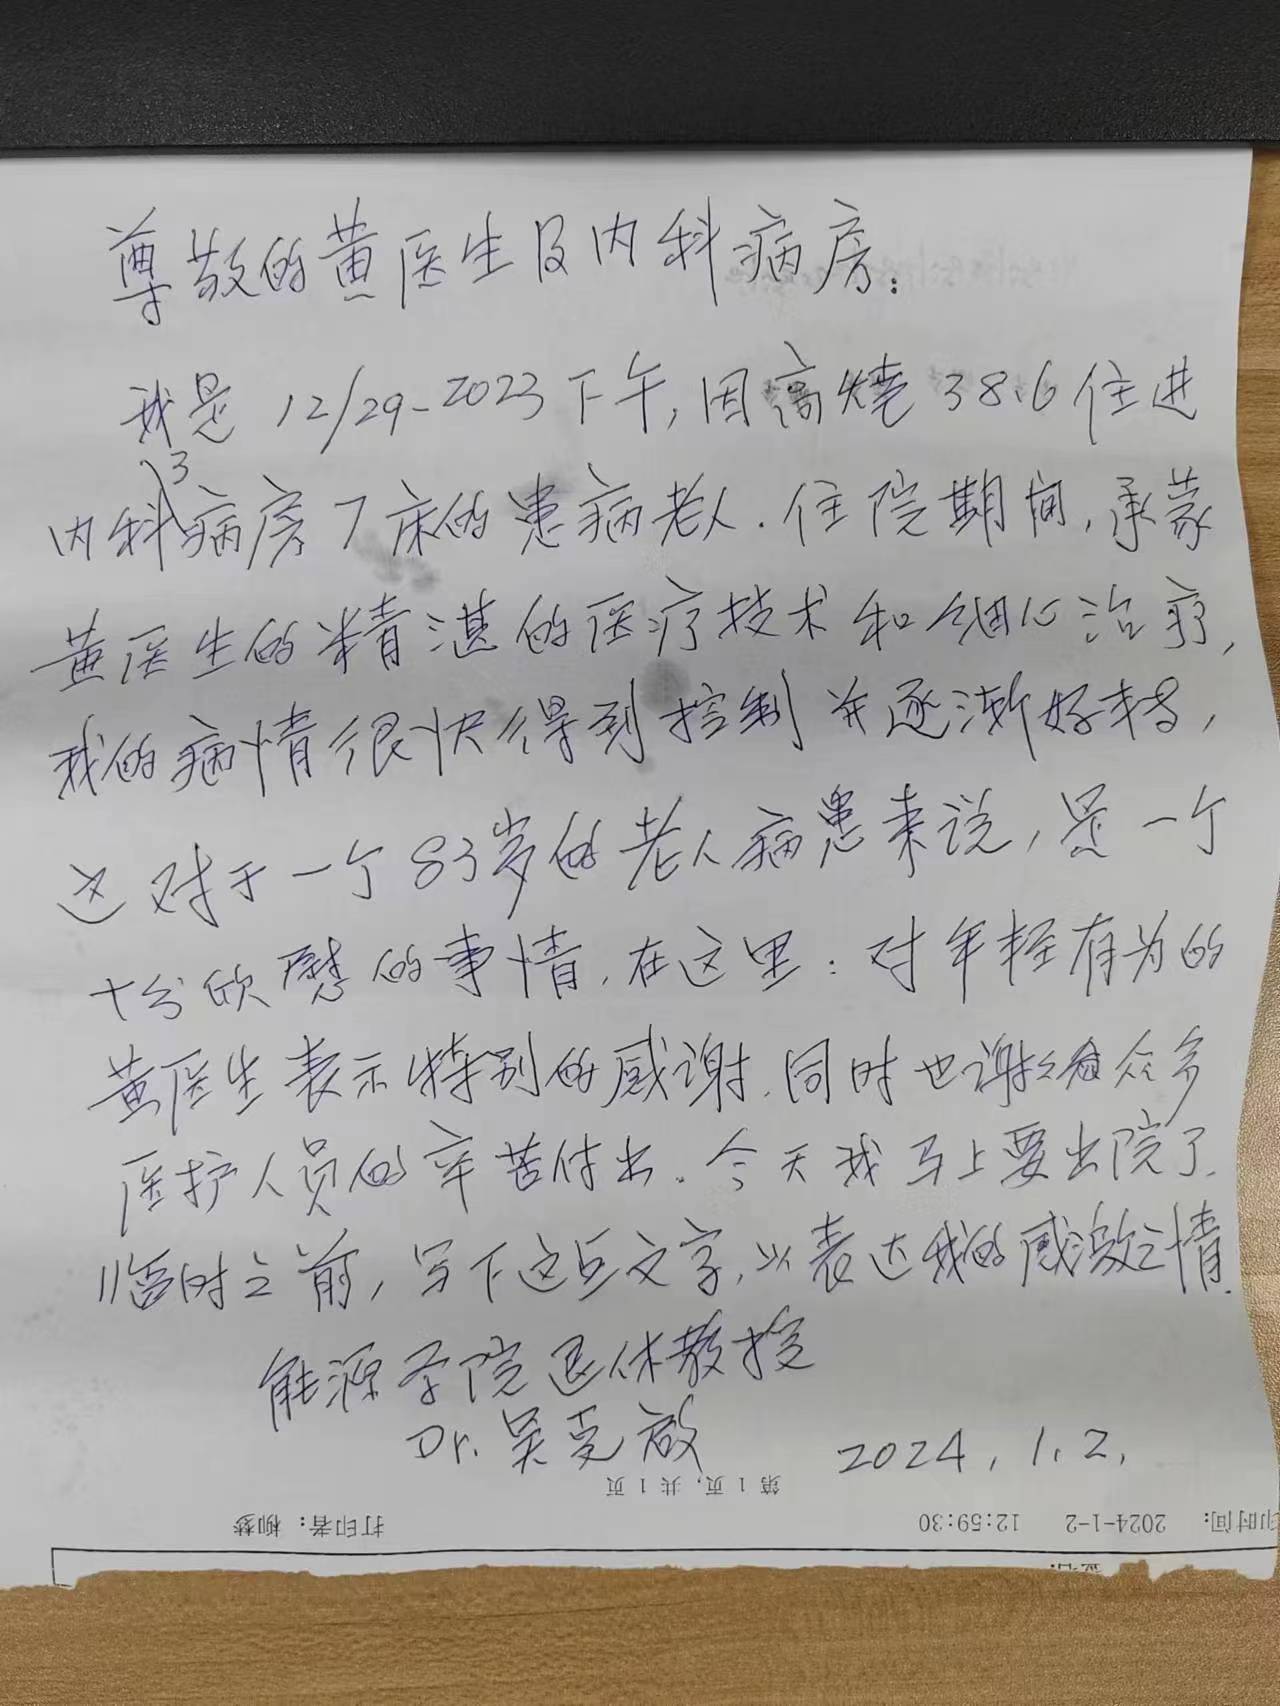 尊敬的黄医生及内科病房:
我是 12/29-2023下午,因高烧38.6住进
内科3病房7床的患病老人.住院期间,承蒙
黄医生的精湛的医疗技术和细心治疗,
我的病情很快得到控制并逐渐好转,
这对于一个83岁的老人病患来说,是一个
十分欣慰的事情.在这里:对年轻有为的
黄医生表示特别的感谢.同时也谢谢众多
医护人员的辛苦付出.今天我马上要出院了.
临时之前,写下这点文字,以表达我的感激之情.
能源学院退休教授
Dr.吴克啟 2024.1.2.
第1页,共1页
印时间: 2024-1-2 12:59:30 打印者: 柳梦